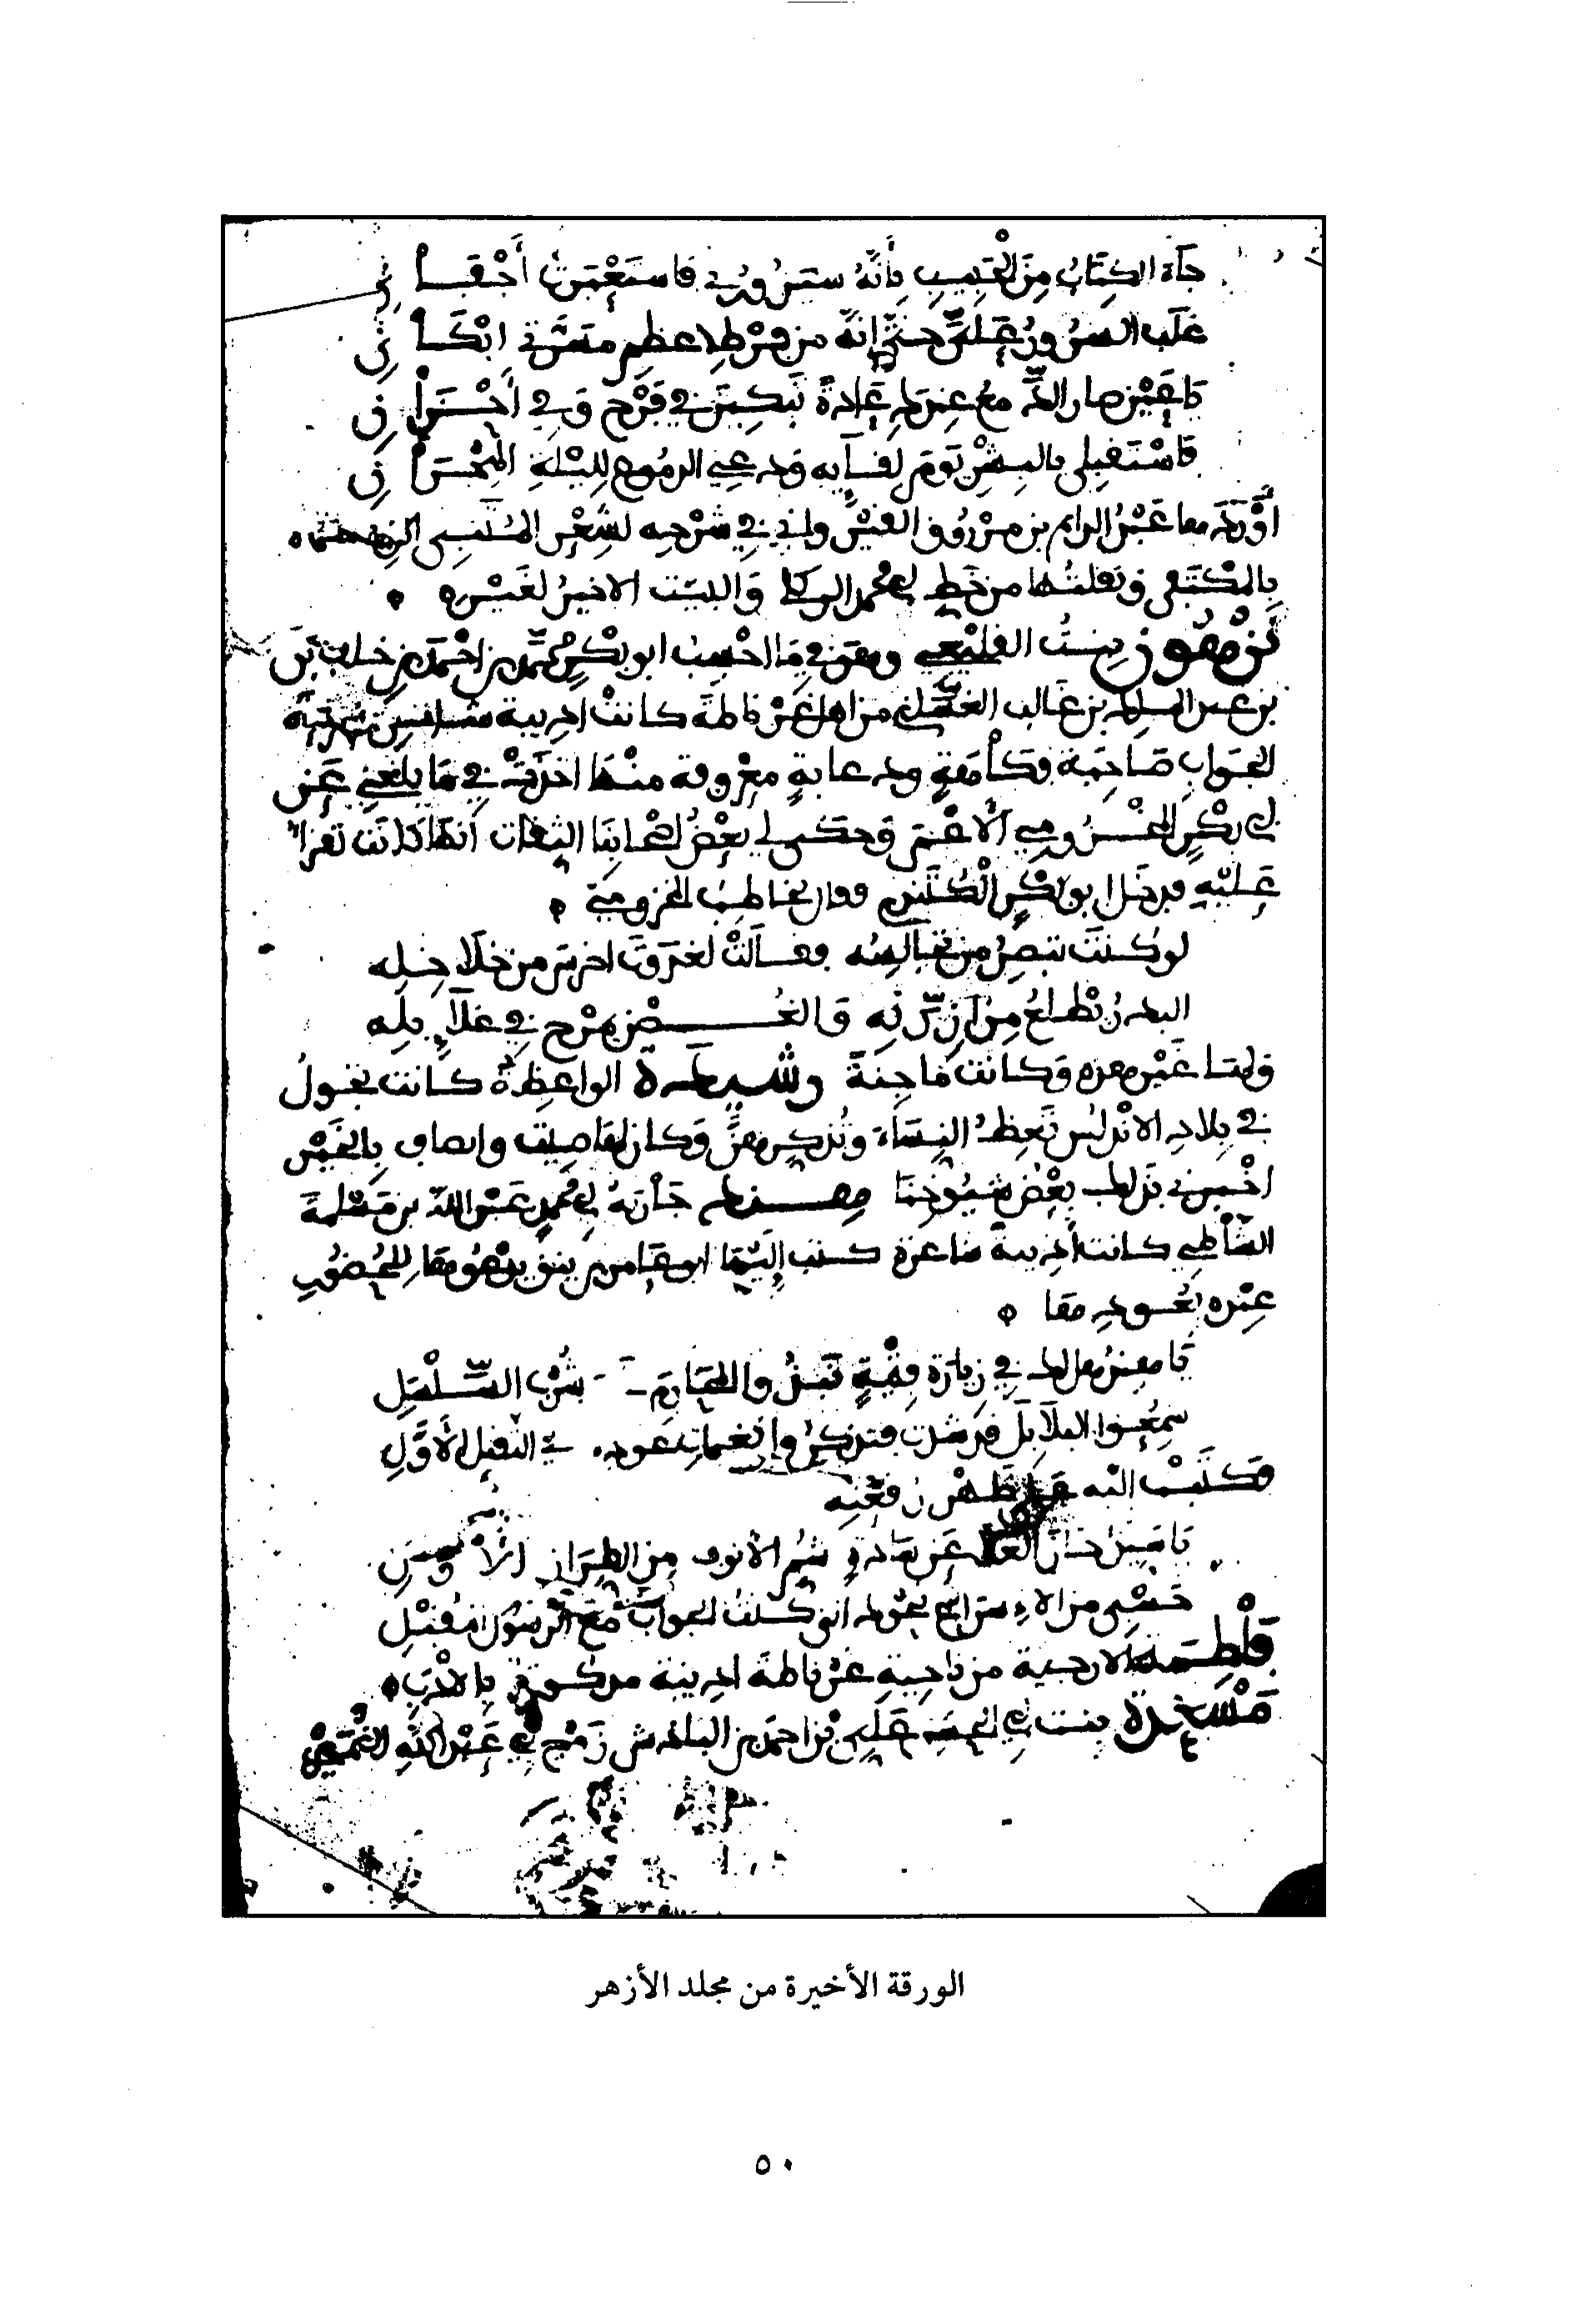 جآءَ الكِتَابُ مِنَ الحَبِيبِ بأنَّهُ سيَزُورُني فاستَعْبَرتْ أجْفَانِي
غلَبَ السُرورُ عَلَيَّ حتّى إنّهُ من فرْطِ عظم مسَرَّتي ابْكَانِي
يا عَيْن صار الدمعُ عندك عَادةً تبكين في فَرَحٍ وَفي أحْزَانِ
فاسْتَقبلي بالبِشْرِ يَومَ لقآيه ودعي الدمُوع لليْلَةِ الهِجْرَانِ
أوْرَدَها عَبْدُ الدايم بن مرْزُوقٍ القيْرَواني في شرْحِه لشِعْرِ المتَنبي الذي سماه
بالمكتفى ونقلتُها من خَط أبي محمد الركلي والبيت الاخيرُ لغَيْره
نَزْهُون بنتُ القليْعي وهو في مَا احْسِبُ ابو بكْرٍ محمّد بن احْمَد بن خلف بن
بن عبد الملك بن غالب الغسّاني من اهل غرْناطَة كانتْ اديبة شاعرة سريعة
الجَوابِ صَاحبَة فكاهَةٍ ودعابةٍ معْروفة منْها أخذَتْ في مَا بلغني عَن
أبي بكْرٍ المخْزُومي الأعْمَى وحَكى لي بعْضُ أصْحابنَا الثقات أنهَا كانت تقرأ
عَليْهِ فدخل ابو بكْرٍ الكُتَنْدي فقال يخاطبُ المخزومي
لو كنتَ تبصِرُ من تجَالِسُه فقالتْ لغَدَوتَ اخرسَ من خلَاخِلِه
البدرُ يَطْلعُ من أزِرّتِه وَالغُصْن يمْرَح في غلَائِلِه
ولها غَيْر هذه وكانت مَاجِنَةً رشيدة الواعظةُ كانت تجولُ
في بلاد الانْدلُس تَعظُ النِسَاءَ وتُذكِرهنَّ وكان لها صيت واتصاف بِالخَيْر
اخْبرني بذلك بعْضُ شيُوخِنَا هنْد جَاريَةُ أبي محمدٍ عبْد الله بن مَسْلمةَ
الشاطبي كانت أديبةً شاعرة كتب إلَيْهَا ابو عَامر بن ينق يدعُوهَا للحُضُورِ
عنْده بعُودهَا
يا هنْدُ هل لكِ في زيارَة فتْيةٍ نَبَذُوا المحَارمَ غير شُرْبِ السَّلْسَلِ
سمعُوا البلَابلَ قد شدت فتذكرُوا نغمات عُودك في الثقيل الأوَّلِ
فكتَبتْ اليْه على ظهْر رُقعَتِه
يا سَيدًا حازَ العُلى عَن سَادةٍ شُمّ الأنوف من الطِرَاز الأوّلِ
حَسْبي من الاسراع نحْوك انني كنتُ الجوابَ معَ الرسُول المقْبِل
فَاطمَة الاردية من ناحيةِ غرْناطة اديبة مذكورة بالأدَب
مَسْعدَة بنت أبي الحسن عَلي بن احمد بن الباذش زَوْج أبي عَبْد الله النميْري
الورقة الأخيرة من مجلد الأزهر
٥٠